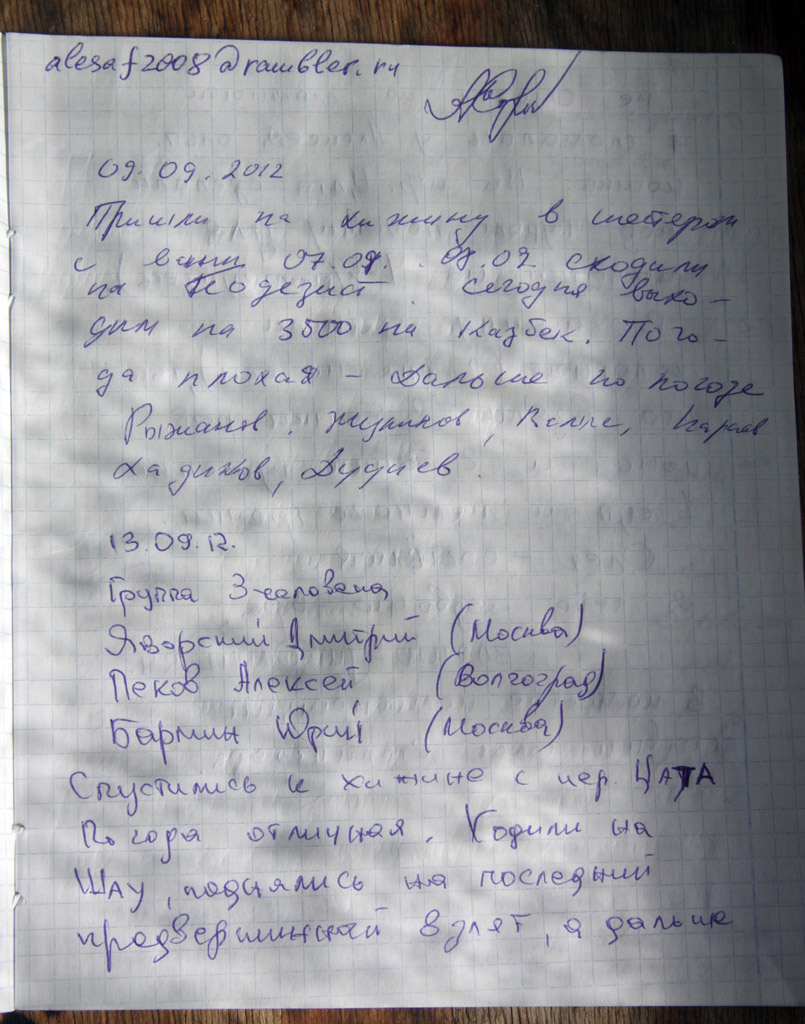 alesaf2008@rambler.ru
09.09.2012
Пришли на хижину в шестером
с 07.09. 08.09 сходили
на сегодня выхо-
дим на 3500 на Казбек. Пого-
да плохая - Дальше по погоде
Рыжанов,
Хадиков, Дудиев.
13.09.12.
Группа 3 человека
Яворский Дмитрий (Москва)
Пеков Алексей (Волгоград)
Бармин Юрий (Москва)
Спустились к хижине с пер. ЦАТА
Погода отличная. Ходили на
Шау, поднялись на последний
предвершинный взлят, а дальше